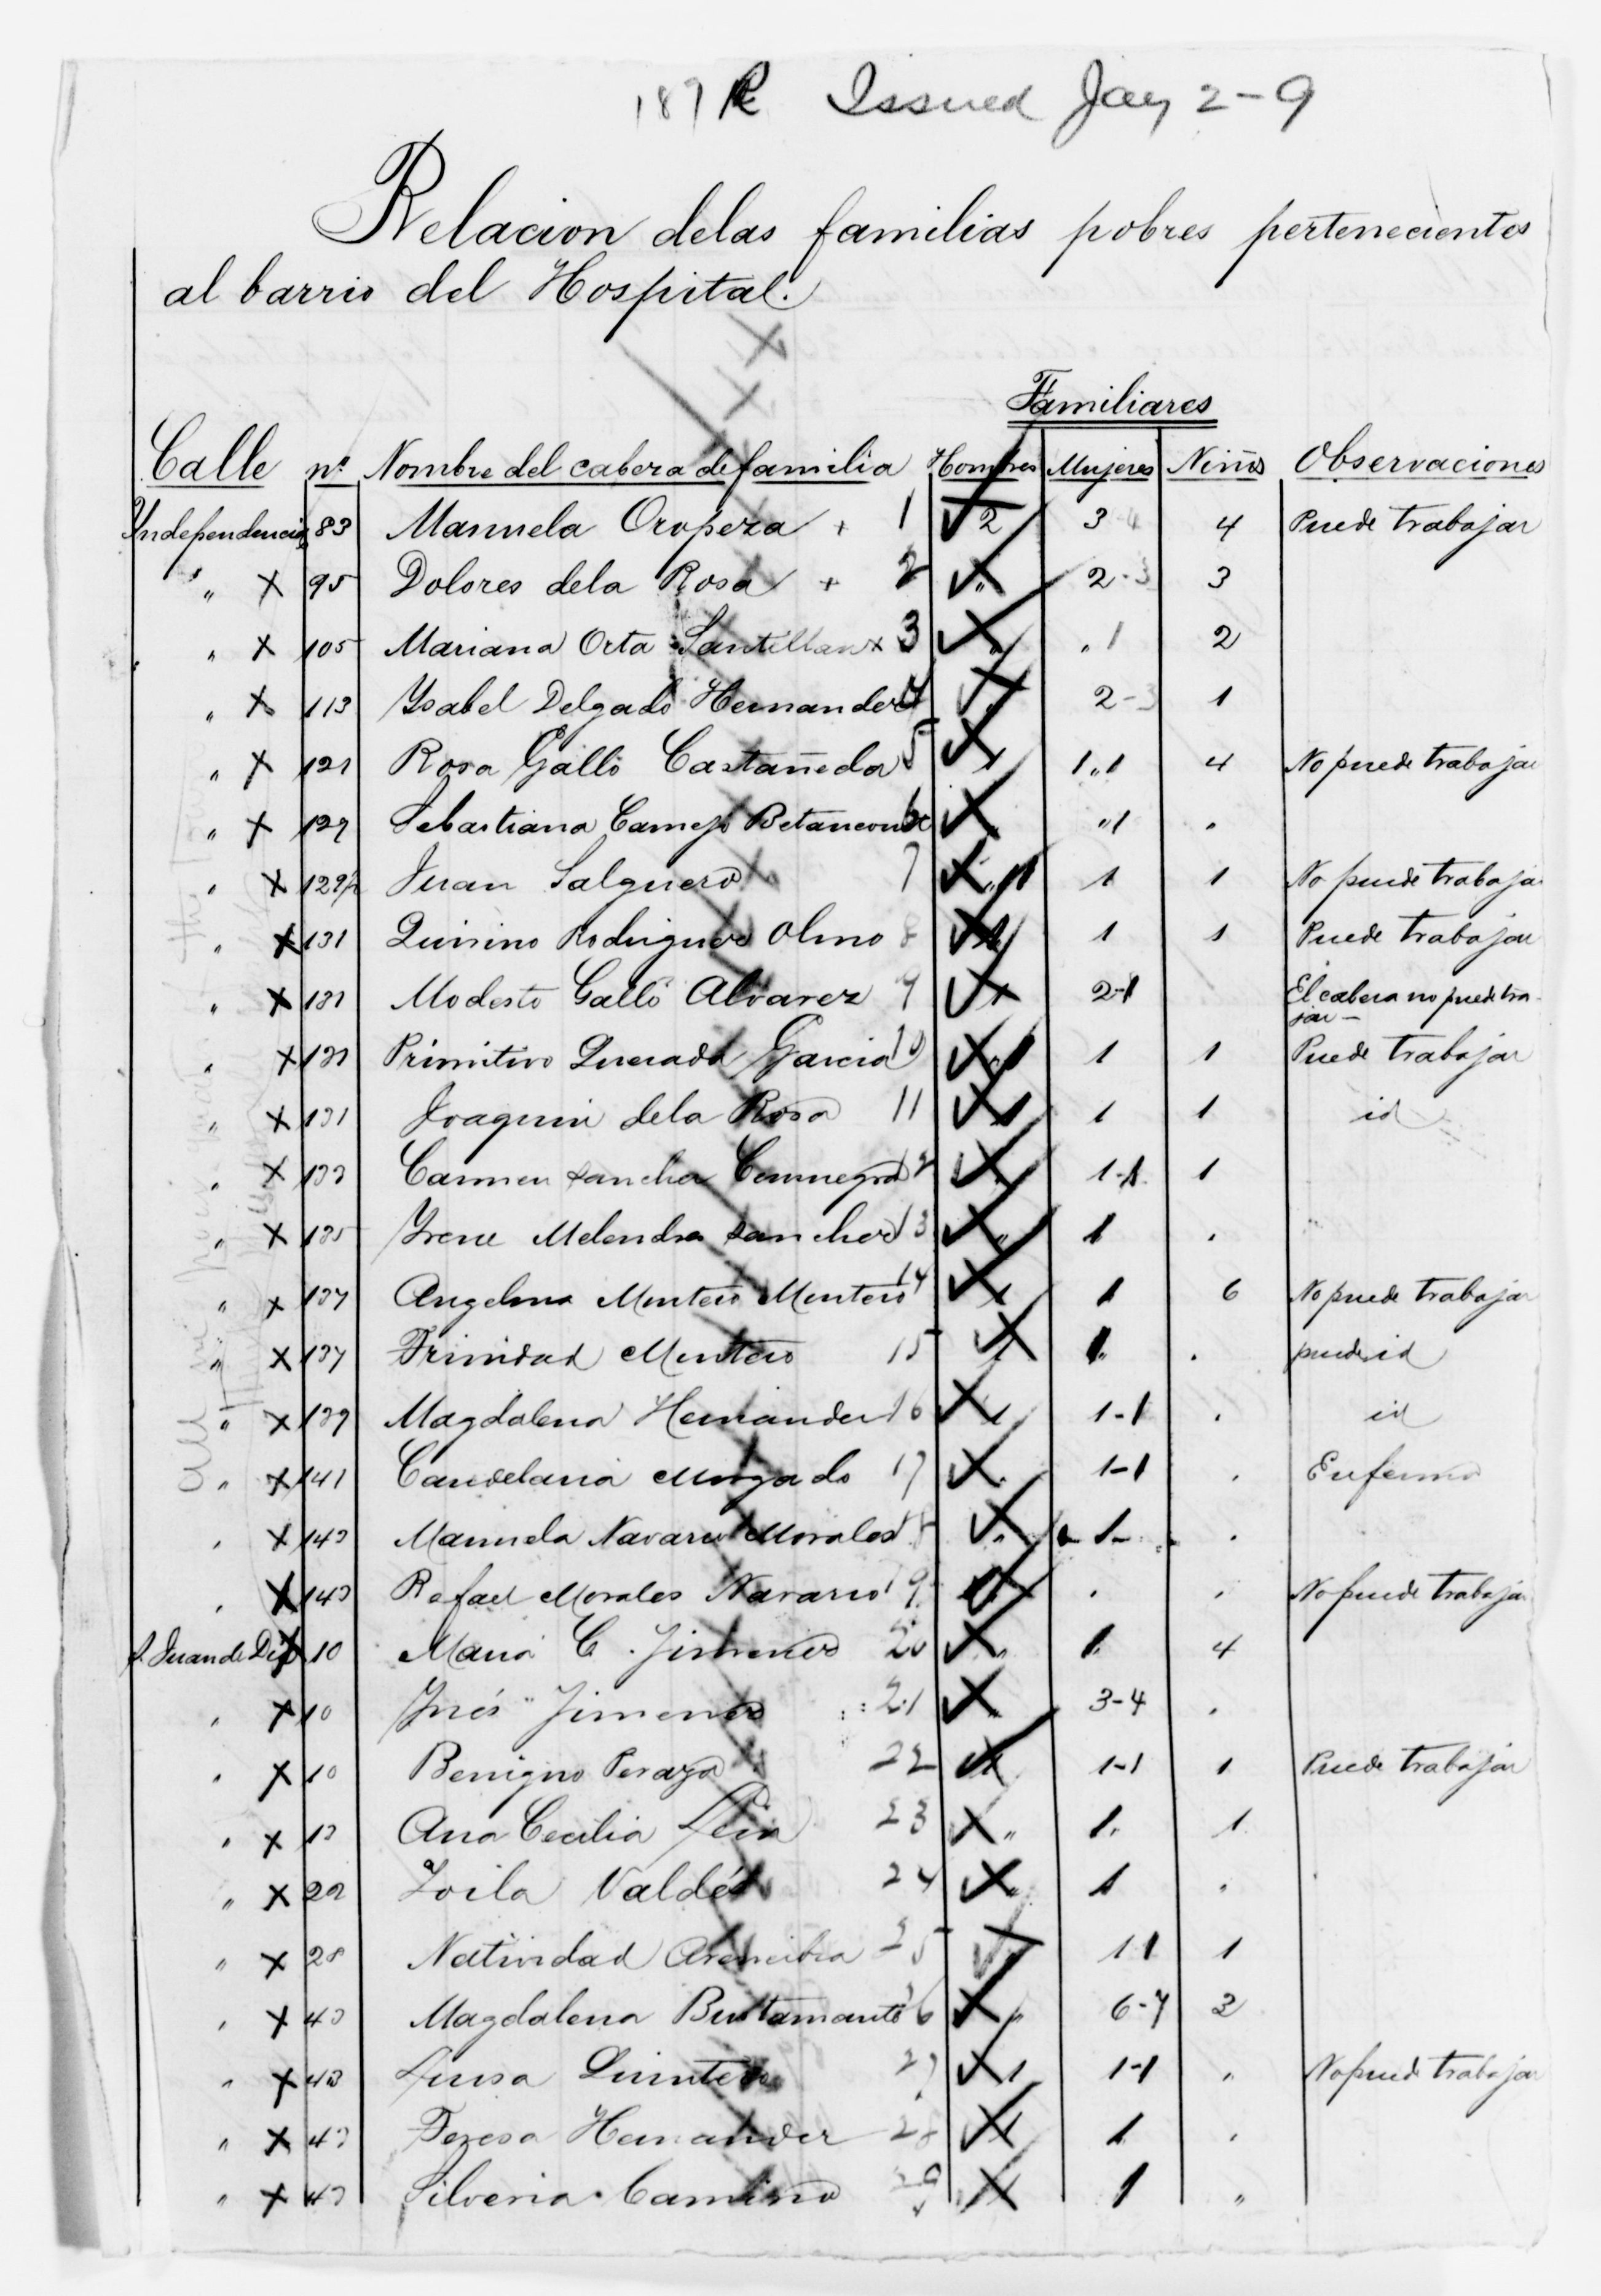 187 R Issued Jay 2-9
Relacion delas familias pobres pertenecientes
al barrio del Hospital.
Familiares
Calle nº Nombre del cabera de familia Hombres Mujeres Niños Observaciones
Yndependencia 83 Manuela Oropeza + 1 2 3-4 4 Puede trabajar
" X 95 Dolores dela Rosa + 2 " 2-3 3
" X 105 Mariana Orta Santillan x 3 " " 1 2
" X 113 Ysabel Delgado Hernandez 4 2-3 1
" X 121 Rosa Gallo Castañeda 5 1 1"1 4 No puede trabajar
" X 129 Sebastiana Camejo 6 "1 "
" X Juan Salguero 7 1 1 No puede trabajar
" X 131 Quirino Rodriguez Olmo 8 1 1 1 Puede trabajar
" X 131 Modesto Gallo Alvarez 9 1 2-1 El cabera no puede tra-
jar-
" X 131 Primitivo Quesada Garcia 10 1 1 1 Puede trabajar
" X 131 Joaquin dela Rosa 11 1 1 1 id
" X 133 Carmen Sanchez 12 1-1 1
" X 135 Yrene Melendez Sanchez 13 " 1 "
" X 137 Angelina Montero Montero 14 1 1 6 No puede trabajar
" X 137 Trinidad Montero 15 1 1" " puede id
" X 139 Magdalena Hernandez 16 1 1-1 " id
" X 141 Candelaria Morgado 17 " 1-1 " Enferma
" X 143 Manuela Navarro Morales 18 " 1- "
" X 143 Rafael Morales Navarro 19 " " No puede trabajar
S. Juan de Dios X 10 Maria C. Jimenez 20 " 1 4
" X 10 Ynés Jimenez 21 3-4 "
" X 10 Benigno Peraza 22 1 1-1 1 Puede trabajar
" X 13 Ana Cecilia 23 " 1 1
" X 22 Zoila Valdés 24 " 1 "
" X 28 Natividad Arencibia 25 " 1 1 1
" X 43 Magdalena Bustamante 26 " 6-7 3
" X 43 Luisa Quintero 27 1 1-1 " No puede trabajar
" X 43 Teresa Hernandez 28 1 1 "
" X 43 Silveria Camino 29 1 1 "